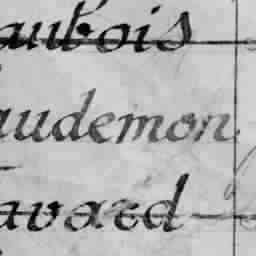 aubois
audemon
avard